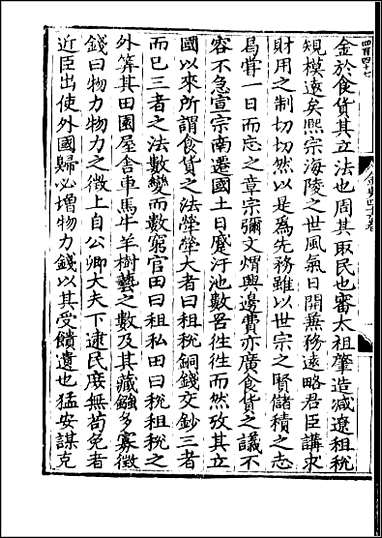 金於食貨其立法也周其取民也審太祖肇造減遼租稅
規模遠矣熙宗海陵之世風氣日開兼務遠略君臣講求
財用之制切切然以是爲先務雖以世宗之賢儲積之志
曷嘗一日而忘之章宗彌文煟興邊費亦廣食貨之議不
容不急宣宗南遷國土日蹙汙池數罟往往而然攷其立
國以來所謂食貨之法犖犖大者曰租稅銅錢交鈔三者
而已三者之法數變而數窮官田曰租私田曰稅租稅之
外筭其田園屋舍車馬牛羊樹藝之數及其藏鏹多寡徵
錢曰物力物力之徵上自公卿大夫下逮民庶無苟免者
近臣出使外國歸必增物力錢以其受饋遺也猛安謀克